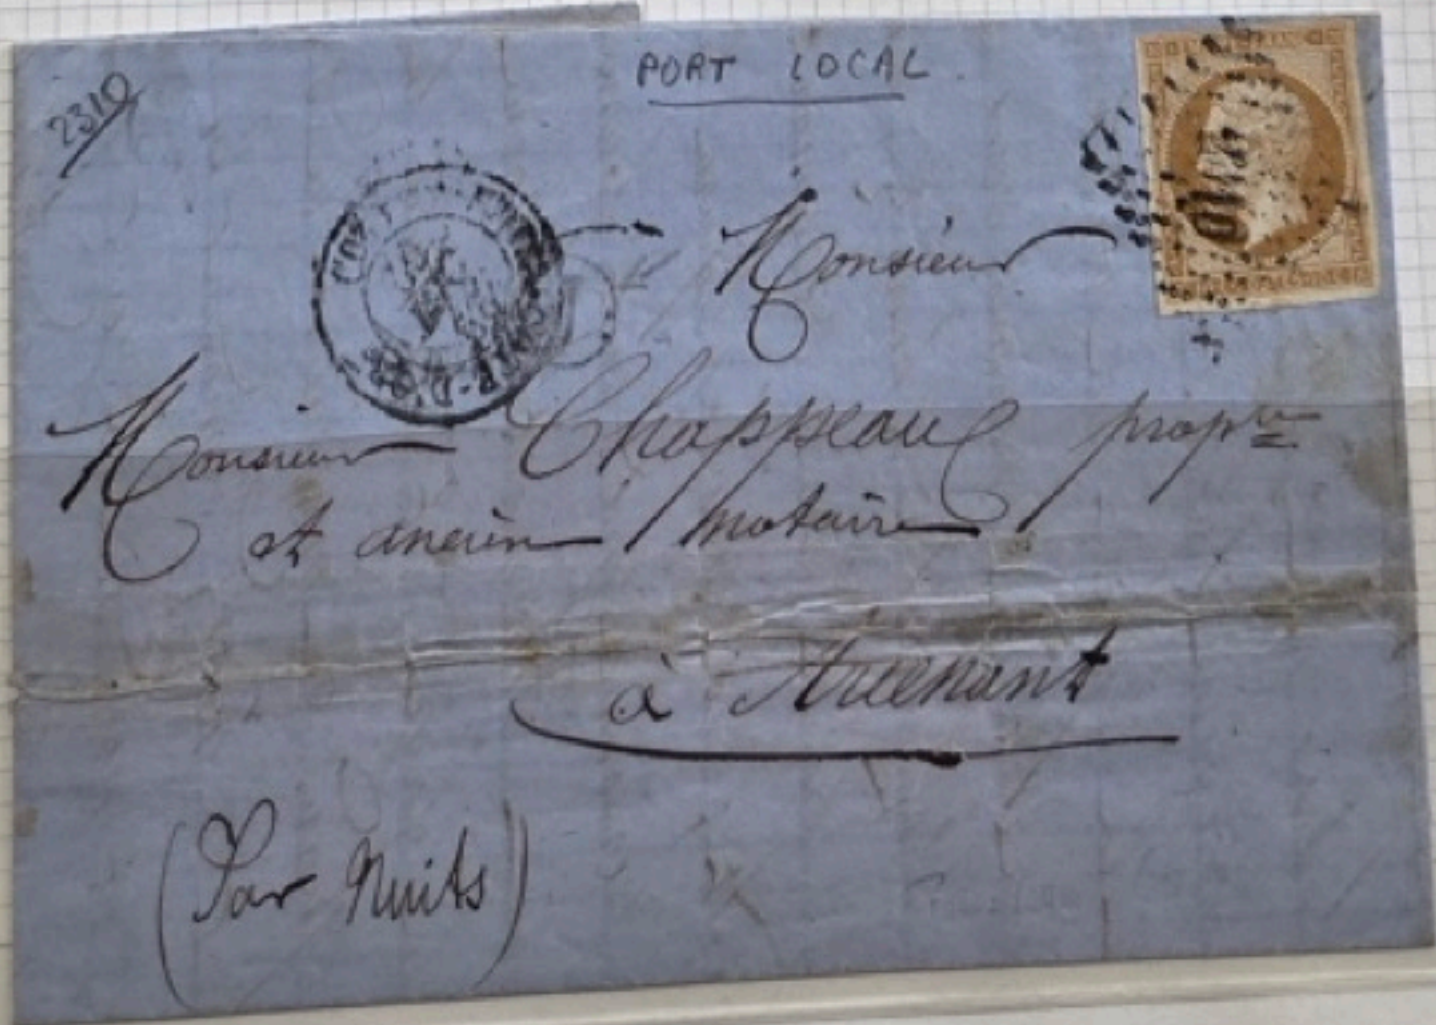 2310
PORT LOCAL
2310
Monsieur
Monsieur Chappeau propre
et ancien notaire
à Arcenant
(Par Nuits)